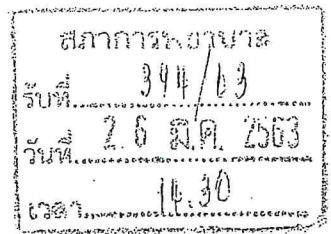 สภาการพยาบาล
รับที่ 394/63
วันที่ 26 มี.ค. 2563
เวลา 14.30